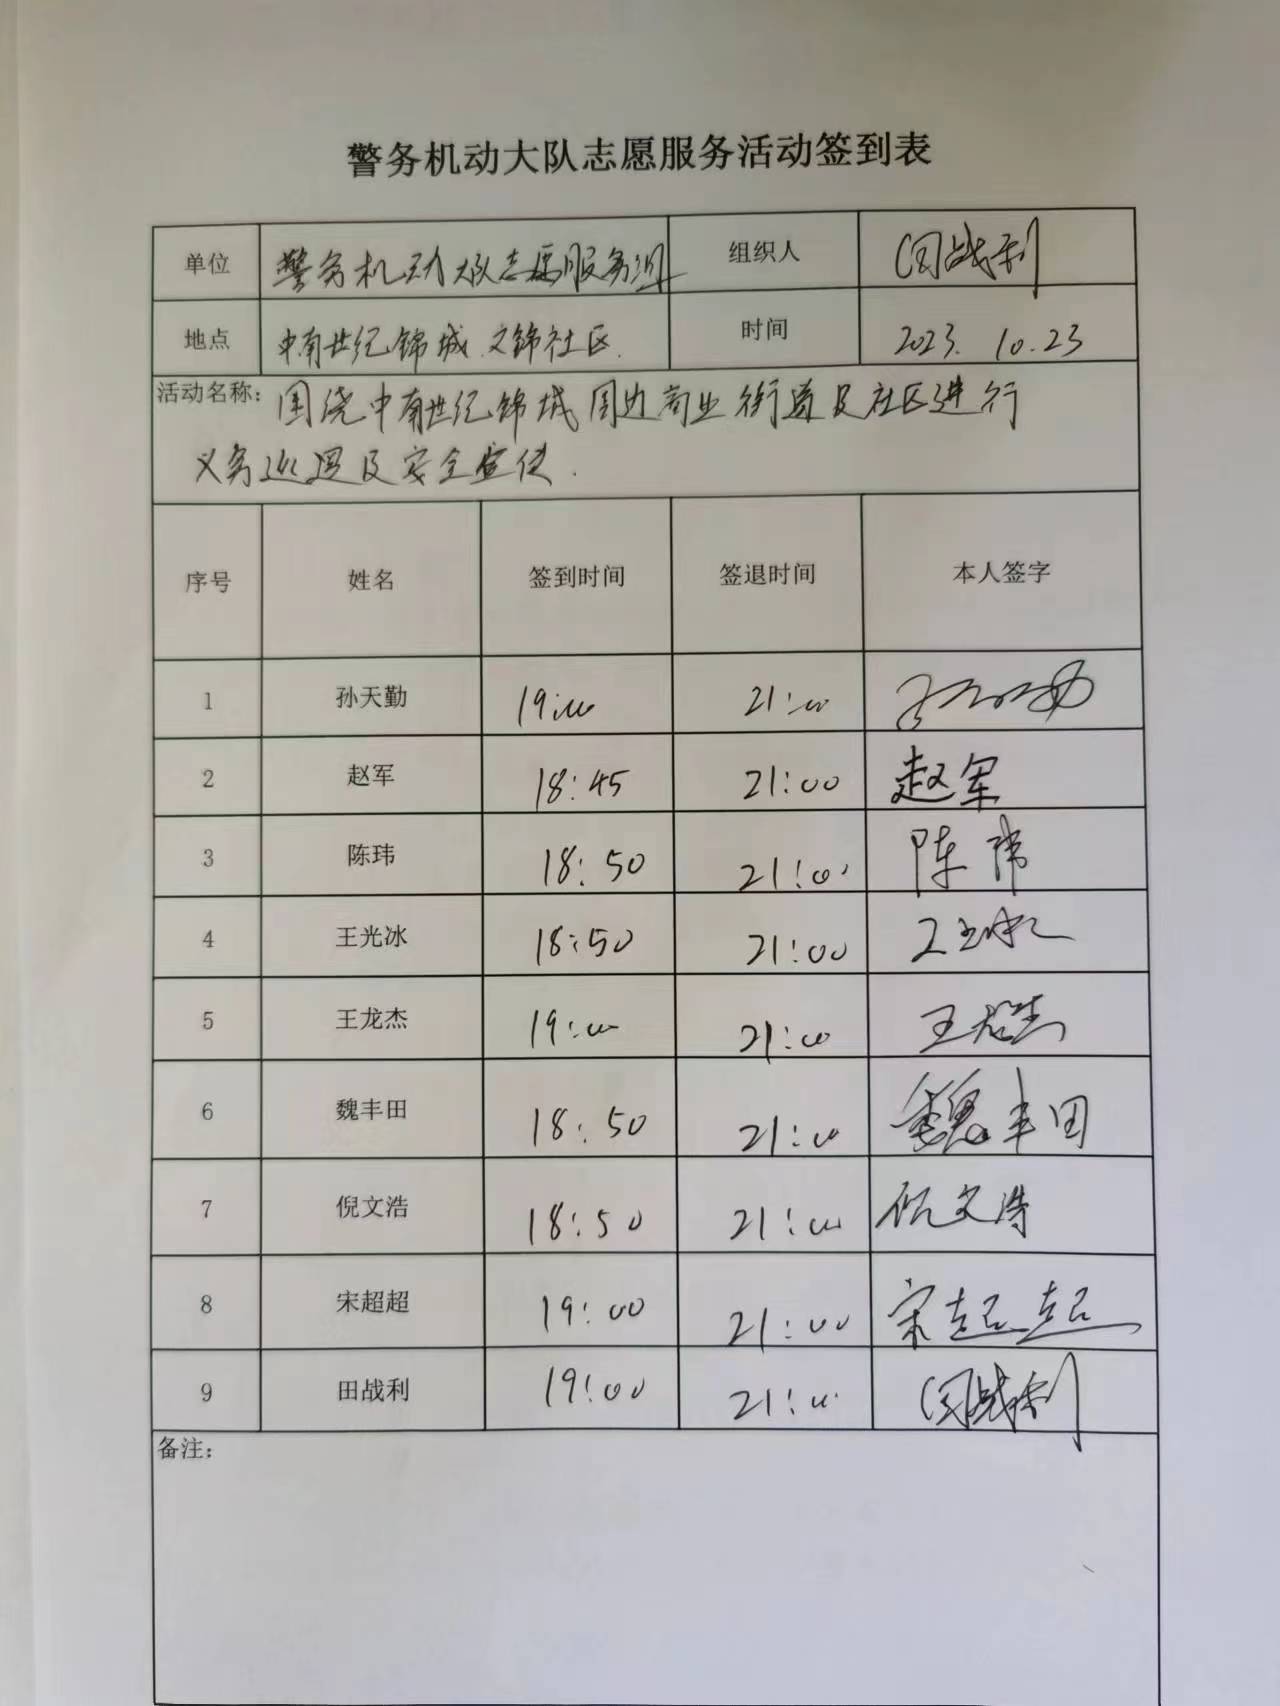 警务机动大队志愿服务活动签到表
单位 警务机动大队志愿服务组 组织人 田战利
地点 中南世纪锦城.文锦社区. 时间 2023.10.23
活动名称：围绕中南世纪锦城周边商业街道及社区进行
义务巡逻及安全宣传.
序号 姓名 签到时间 签退时间 本人签字
1 孙天勤 19:00 21:00
2 赵军 18:45 21:00 赵军
3 陈玮 18:50 21:00 陈玮
4 王光冰 18:50 21:00 王光冰
5 王龙杰 19:00 21:00 王龙杰
6 魏丰田 18:50 21:00 魏丰田
7 倪文浩 18:50 21:00 倪文浩
8 宋超超 19:00 21:00 宋超超
9 田战利 19:00 21:00 田战利
备注：